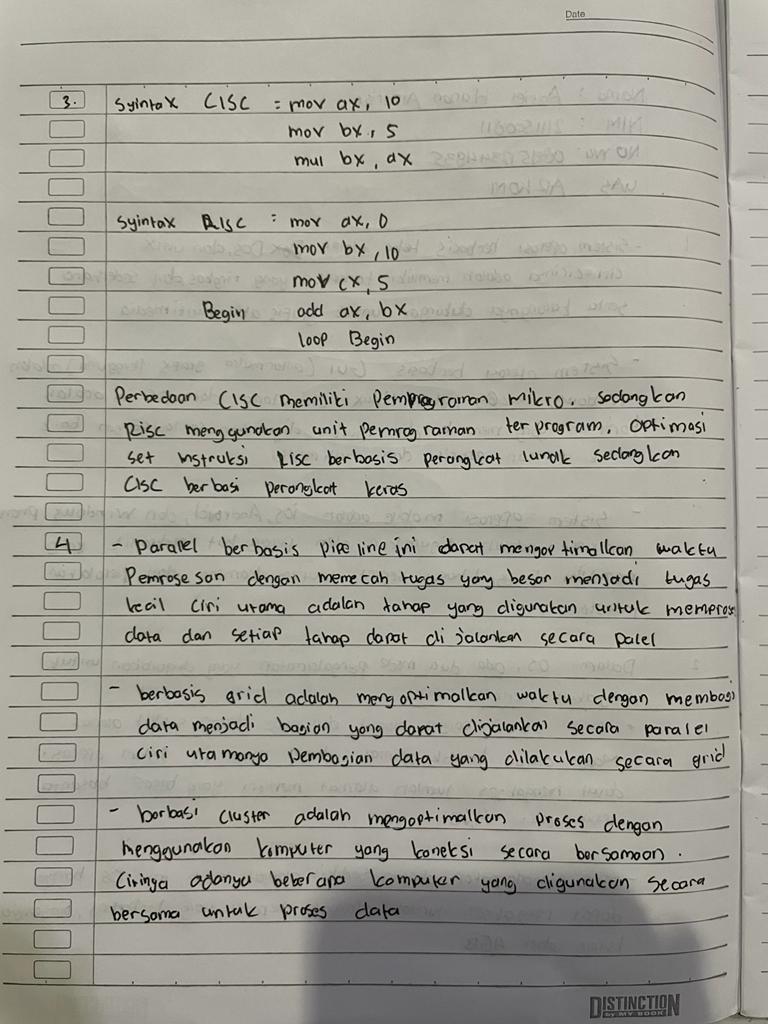 Date
3. Syintax CISC = mov ax, 10
mov bx, 5
mul bx, ax
Syintax RISC = mov ax, 0
mov bx, 10
mov cx, 5
Begin add ax, bx
loop Begin
Perbedaan CISC memiliki Pemprograman mikro. sedangkan
RISC menggunakan unit pemrograman terprogram. Optimasi
set instruksi RISC berbasis perangkat lunak sedangkan
CISC berbasi perangkat keras
4 - Paralel berbasis pipeline ini dapat mengoptimalkan waktu
Pemrosesan dengan memecah tugas yang besar menjadi tugas
kecil ciri utama adalah tahap yang digunakan untuk mempros
data dan setiap tahap dapat di jalankan secara palel
- berbasis grid adalah mengoptimalkan waktu dengan membagi
data menjadi bagian yang dapat dijalankan secara paralel
Ciri utamanya Pembagian data yang dilakukan secara grid
- berbasi cluster adalah mengoptimalkan proses dengan
menggunakan komputer yang koneksi secara bersamaan.
Cirinya adanya beberapa komputer yang digunakan secara
bersama untuk proses data
DISTINCTION
by MY BOOK